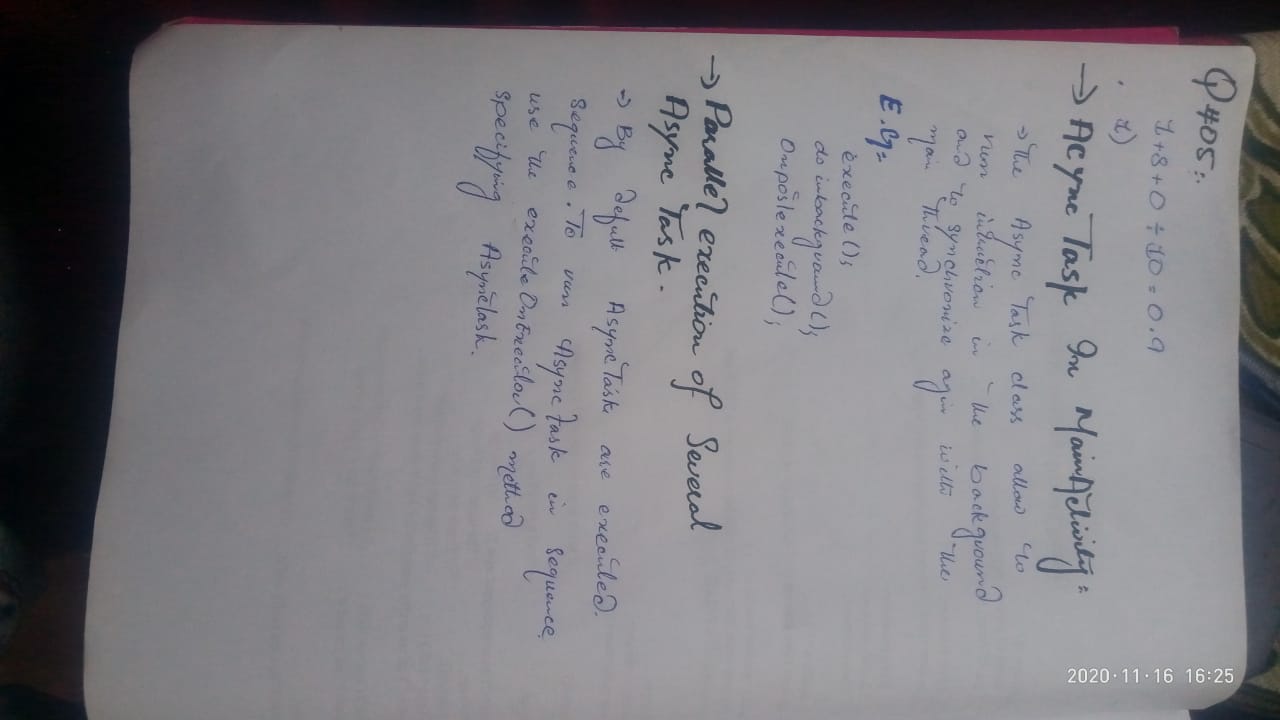 Q405:-
1+8+0÷10=0.9
1)
→ Acync Task In MainActivity:
→ The Async Task class allow to
run intuction in the background
and to synchronize agin with the
main thread.
E.g:
execute();
do inbackground();
Onpostexecute();
→ Parallel execution of Several
Async Task.
→ By defult AsyncTask are executed.
Sequence. To run Async Task in sequence.
use the execute OnExecutor() method
specifying AsyncTask.
2020·11·16 16:25